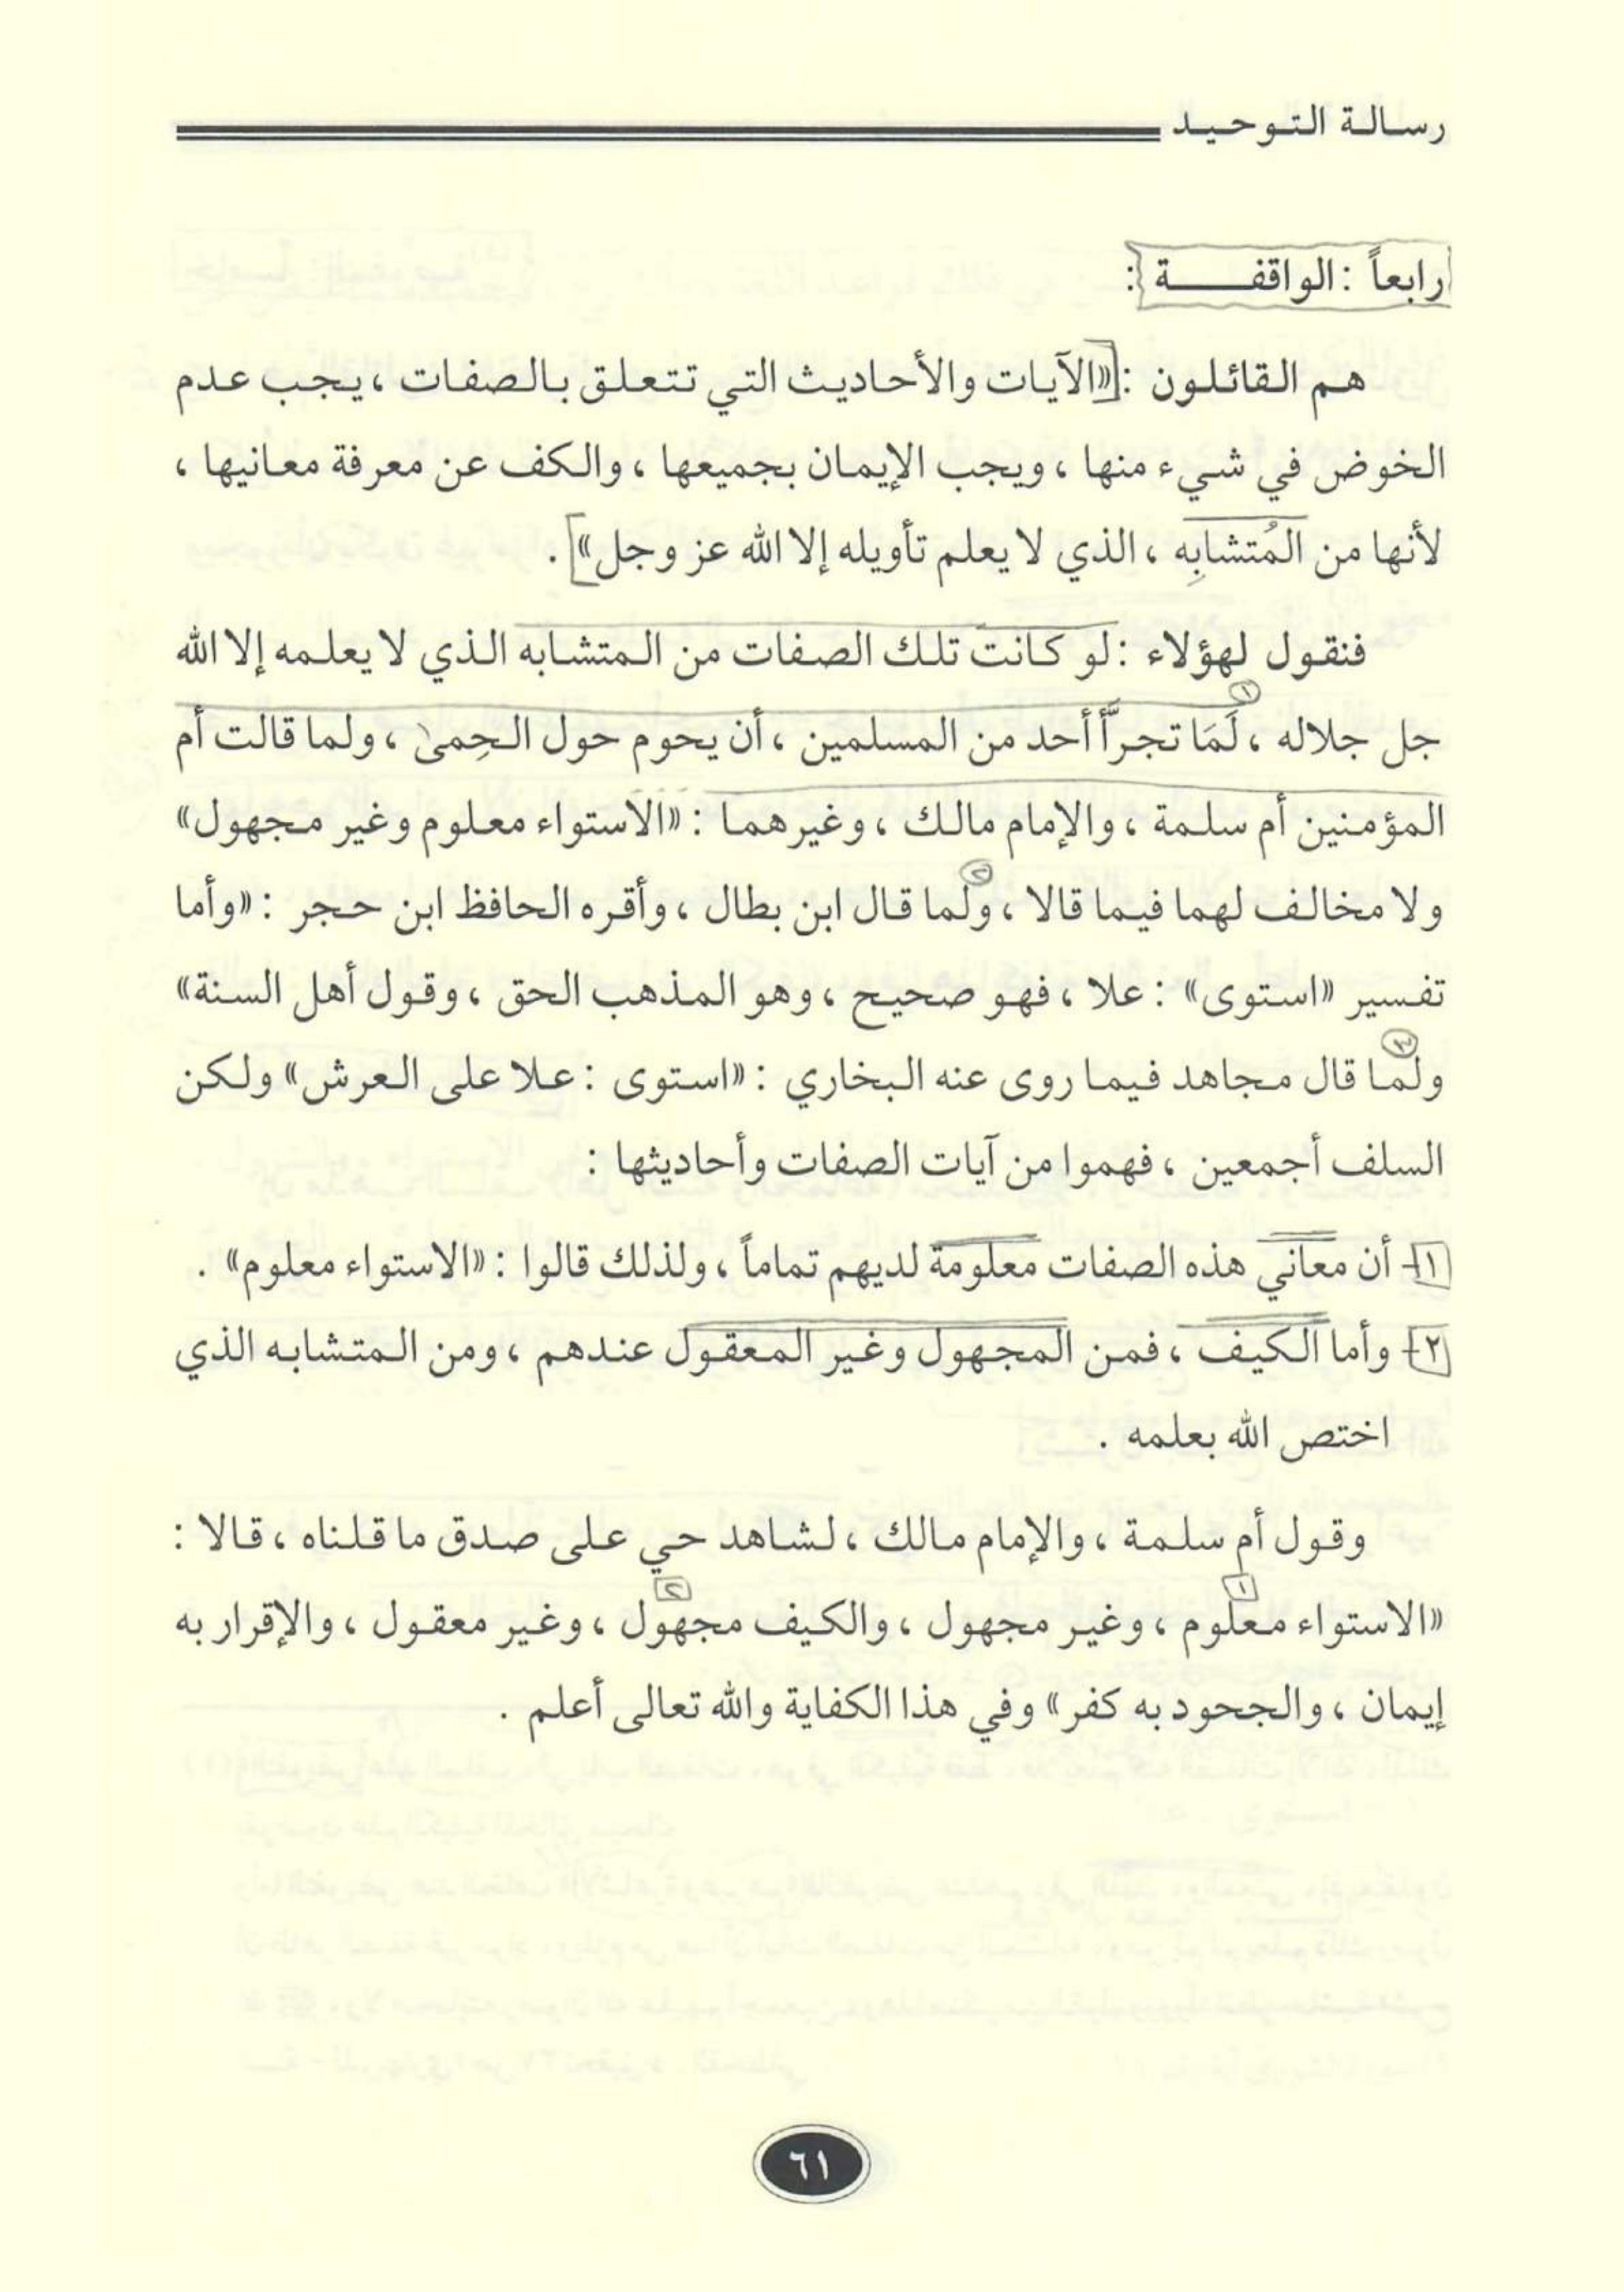 رسالة التوحيد
رابعاً : الواقفة :
هم القائلون : «الآيات والأحاديث التي تتعلق بالصفات ، يجب عدم
الخوض في شيء منها ، ويجب الإيمان بجميعها ، والكف عن معرفة معانيها ،
لأنها من المُتشابِه ، الذي لا يعلم تأويله إلا الله عز وجل» .
فنقول لهؤلاء : لو كانت تلك الصفات من المتشابه الذي لا يعلمه إلا الله
جل جلاله ، لَمَا تجرَّأ أحد من المسلمين ، أن يحوم حول الحِمىٰ ، ولما قالت أم
المؤمنين أم سلمة ، والإمام مالك ، وغيرهما : «الاستواء معلوم وغير مجهول»
ولا مخالف لهما فيما قالا ، ولما قال ابن بطال ، وأقره الحافظ ابن حجر : «وأما
تفسير «استوى» : علا ، فهو صحيح ، وهو المذهب الحق ، وقول أهل السنة»
ولما قال مجاهد فيما روى عنه البخاري : «استوى : علا على العرش» ولكن
السلف أجمعين ، فهموا من آيات الصفات وأحاديثها :
١- أن معاني هذه الصفات معلومة لديهم تماماً ، ولذلك قالوا : «الاستواء معلوم» .
٢- وأما الكيف ، فمن المجهول وغير المعقول عندهم ، ومن المتشابه الذي
اختص الله بعلمه .
وقول أم سلمة ، والإمام مالك ، لشاهد حي على صدق ما قلناه ، قالا :
«الاستواء معلوم ، وغير مجهول ، والكيف مجهول ، وغير معقول ، والإقرار به
إيمان ، والجحود به كفر» وفي هذا الكفاية والله تعالى أعلم .
٦١